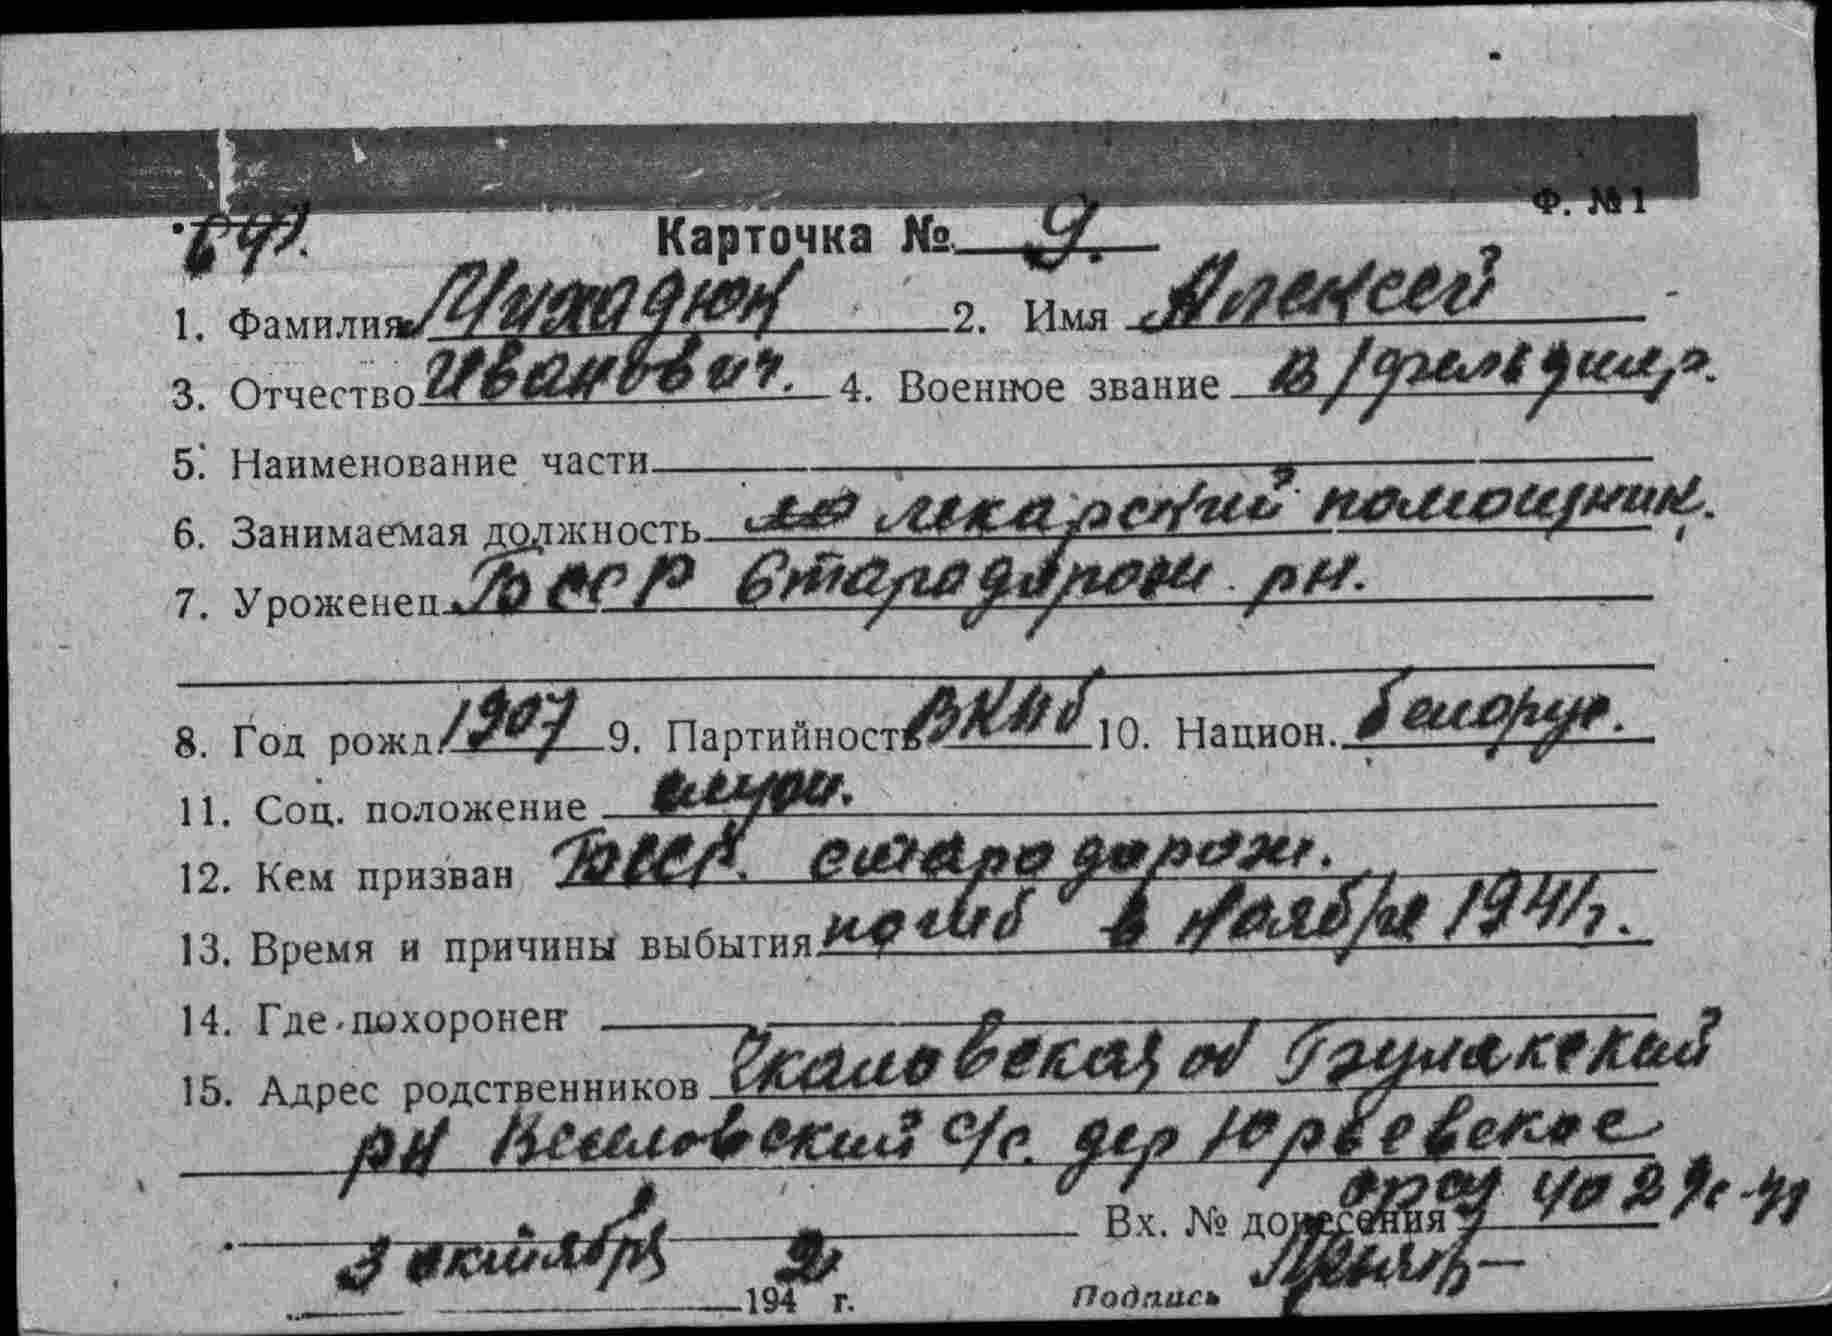 Ф. № 1
Карточка № 9.
1. Фамилия 2. Имя Алексей
3. Отчество Иванович. 4. Военное звание в/фельдшер.
5. Наименование части
6. Занимаемая должность лекарский помощник.
7. Уроженец БССР Стародорожи рн.
8. Год рожд. 1907 9. Партийность ВКПб 10. Национ. белорус.
11. Соц. положение служ.
12. Кем призван БССР. стародорож.
13. Время и причины выбытия погиб в Ноябре 1941 г.
14. Где похоронен
15. Адрес родственников Чкаловская об
рн с/с. дер Юрьевское
Вх. № донесения
3 октября 1942 г. Подпись